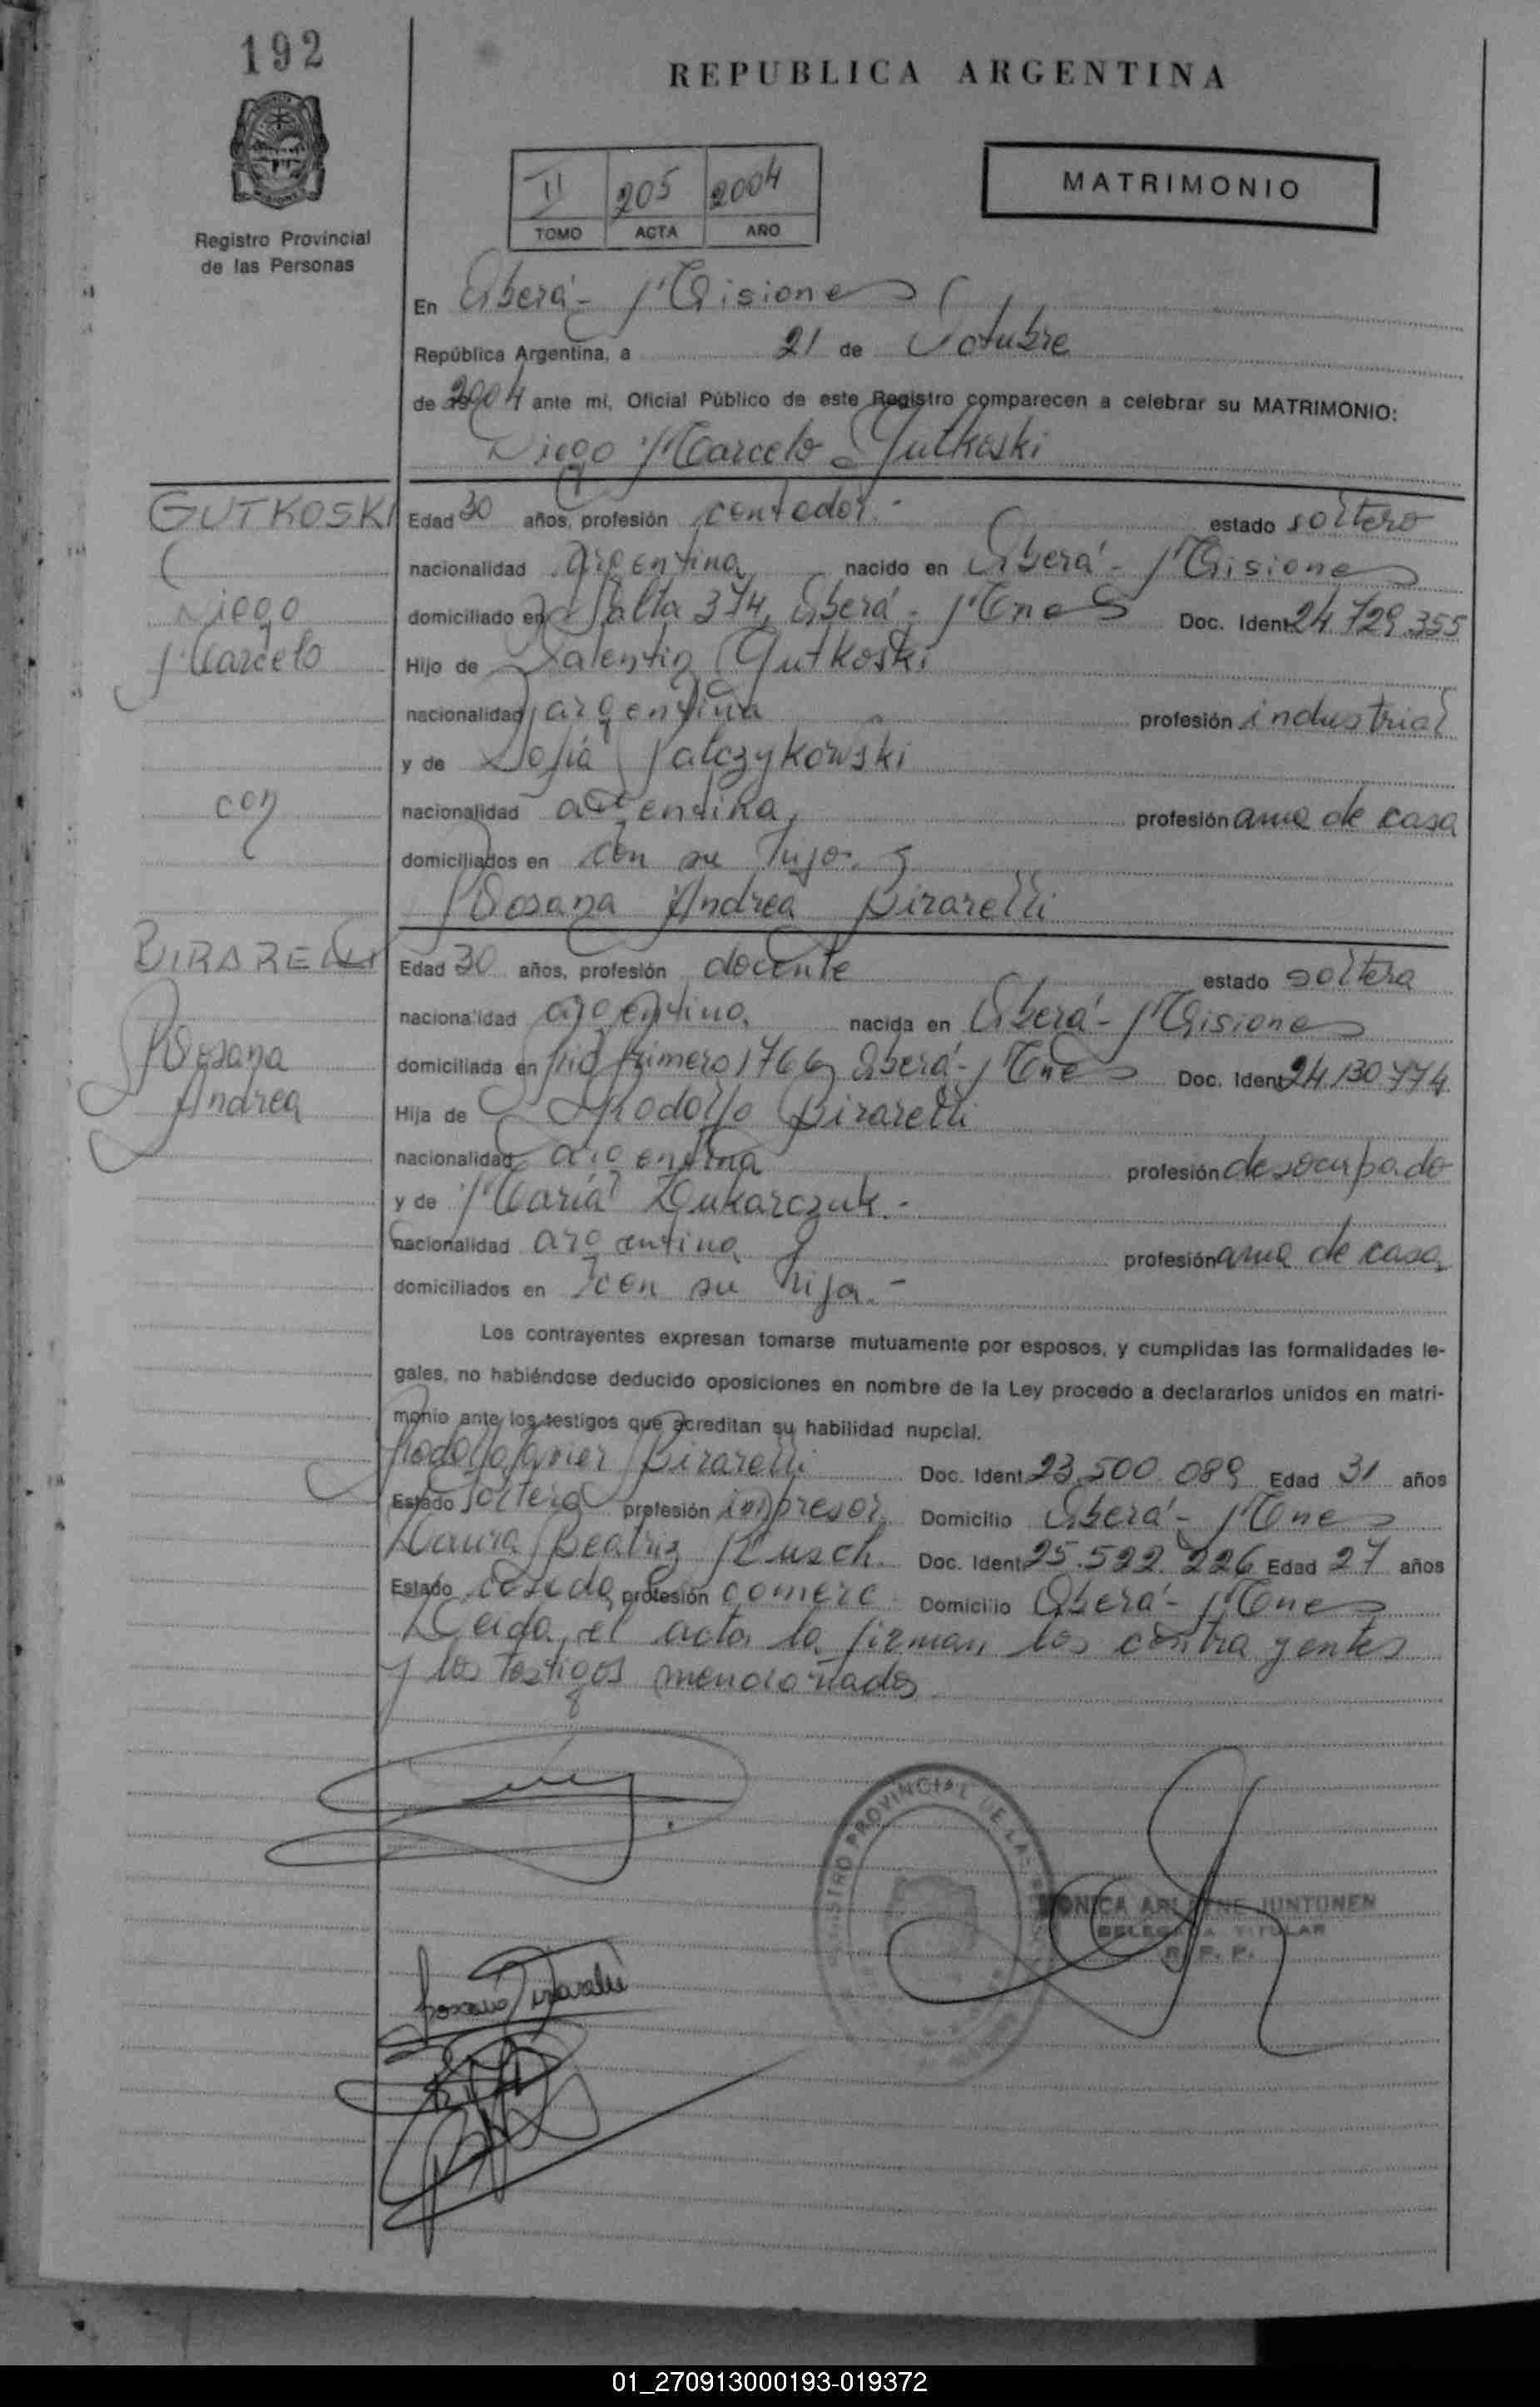 192
REPUBLICA ARGENTINA
MATRIMONIO
II 205 2004
TOMO ACTA AÑO
Registro Provincial
de las Personas
En Oberá - Misiones
República Argentina, a 21 de Octubre
de 2004 ante mí, Oficial Público de este Registro comparecen a celebrar su MATRIMONIO:
Diego Marcelo Gutkoski
GUTKOSKI
Diego
Marcelo
Edad 30 años, profesión contador.- estado soltero
nacionalidad argentina nacido en Oberá - Misiones
domiciliado en Salta 374, Oberá - Mnes Doc. Ident 24.729.355
Hijo de Valentin Gutkoski
nacionalidad argentina profesión industrial
y de Sofia Palczykowski
nacionalidad argentina, profesión ama de casa
con
domiciliados en con su hijo.
Rosana Andrea Birarelli
BIRARELLI
Rosana
Andrea
Edad 30 años, profesión docente estado soltera
nacionalidad argentina. nacida en Oberá - Misiones
domiciliada en Pio Primero 1766 Oberá - Mnes Doc. Ident 24.130.774.
Hija de Rodolfo Birarelli
nacionalidad argentina profesión desocupado
y de María Dukarczuk.-
nacionalidad argentina profesión ama de casa.
domiciliados en con su hija.-
Los contrayentes expresan tomarse mutuamente por esposos, y cumplidas las formalidades le-
gales, no habiéndose deducido oposiciones en nombre de la Ley procedo a declararlos unidos en matri-
monio ante los testigos que acreditan su habilidad nupcial.
Rodolfo Javier Birarelli Doc. Ident 23.500.089 Edad 31 años
Estado soltero profesión impresor Domicilio Oberá - Mnes
Laura Beatriz Kusch. Doc. Ident 25.522.226 Edad 27 años
Estado casada profesión comerc Domicilio Oberá - Mnes
Leida el acta la firman los contrayentes
y los testigos mencionados
REGISTRO PROVINCIAL DE LAS
MONICA ARLENE JUNTUNEN
DELEGADA TITULAR
R. P. P.
Rosana Birarelli
01_270913000193-019372